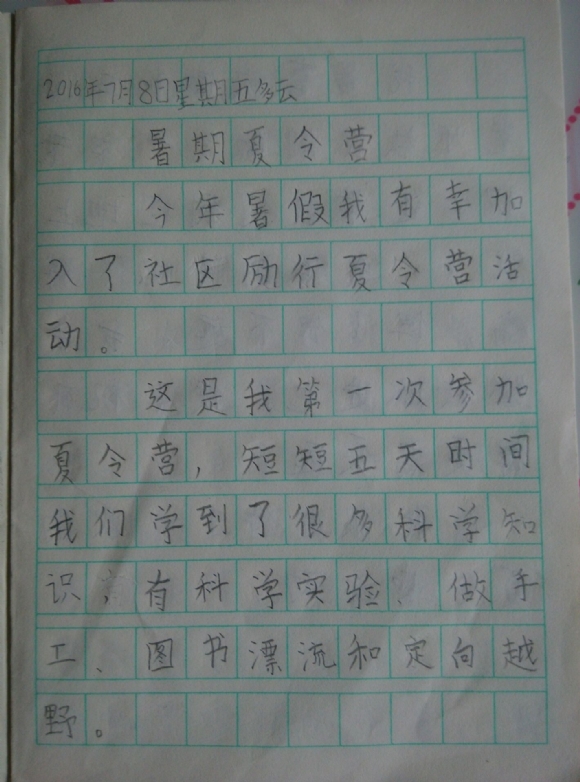 2016年7月8日星期五多云
暑期夏令营
今年暑假我有幸加
入了社区励行夏令营活
动。
这是我第一次参加
夏令营，短短五天时间
我们学到了很多科学知
识，有科学实验、做手
工、图书漂流和定向越
野。